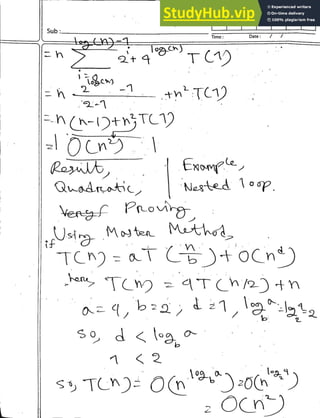 StudyHub.vip
Experienced writers
On-time delivery
100% plagiarism free
Sub :
Time :
Date : / /
log(n)-1
= n ∑ 2^i + 4^log(n) T(1)
i=0
= n (2^log(n) - 1)/(2-1) + n² T(1)
= n(n-1)+n² T(1)
= | O(n²) |
Result,
Quadratic,
Example,
Nested loop.
Proving
Using Master Method,
if
T(n) = aT(n/b) + O(n^d)
here, T(n) = 4T(n/2) + n
a=4, b=2, d=1, log_b a = log_2 4 = 2
So, d < log_b a
1 < 2
So, T(n) = O(n^log_b a) = O(n^log_2 4)
= O(n²)